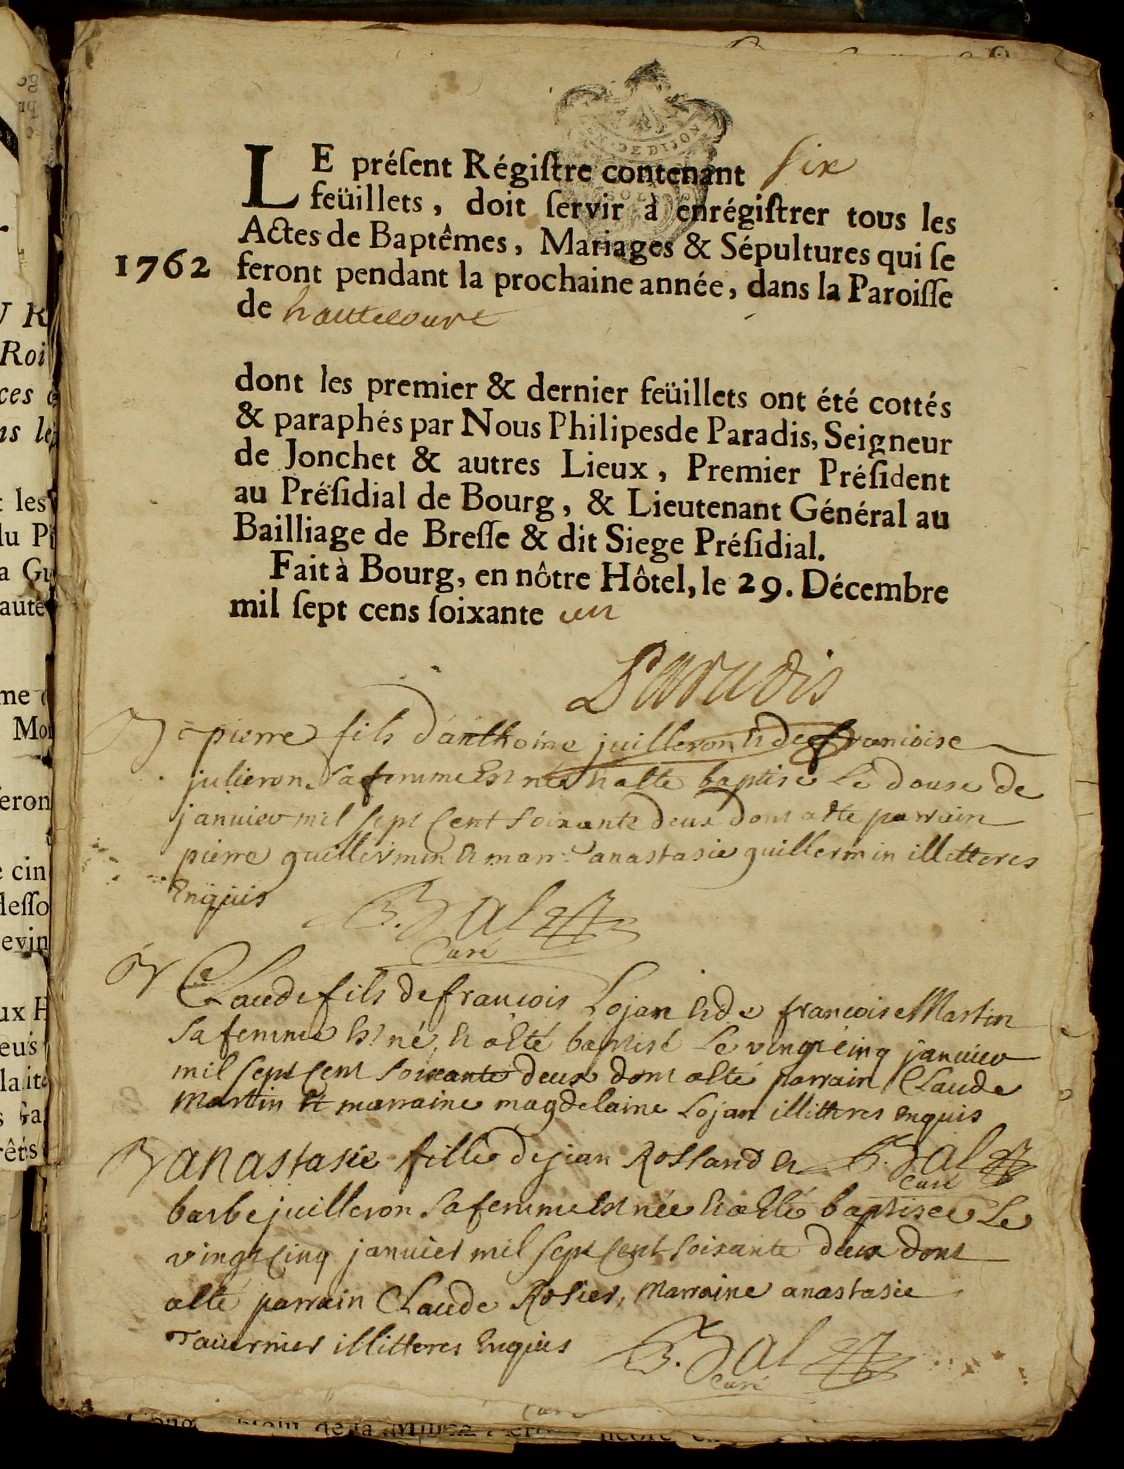 LE préſent Régiſtre contenant six
feüillets, doit ſervir à enrégiſtrer tous les
Actes de Baptêmes, Mariages & Sépultures qui ſe
1762 feront pendant la prochaine année, dans la Paroiſſe
de hautecourt
dont les premier & dernier feüillets ont été cottés
& paraphés par Nous Philipes de Paradis, Seigneur
de Jonchet & autres Lieux, Premier Préſident
au Préſidial de Bourg, & Lieutenant Général au
Bailliage de Breſſe & dit Siege Préſidial.
Fait à Bourg, en nôtre Hôtel, le 29. Décembre
mil ſept cens ſoixante un
Paradis
B pierre fils d'anthoine juilleron & de francoise
julieron sa femme est né & a esté baptisé le douse de
janvier mil sept cent soixante deux dont a esté parrain
pierre guillermin & marr. anastasie guillermin illitteres
enquis
B. Bal
Curé
B Claude fils de francois Lojan & de francoise Martin
sa femme est né, & a esté baptisé le vingt cinq janvier
mil sept cent soixante deux dont a esté parrain Claude
Martin et marraine magdelaine Lojan illitteres enquis
B anastasie fille de jean Rolland & B. Bal
Curé
barbe juilleron sa femme est née & a esté baptisee le
vingt cinq janvier mil sept cent soixante deux dont
a esté parrain Claude Rosier, Marraine anastasie
Tavernier illitteres enquis B. Bal
Curé